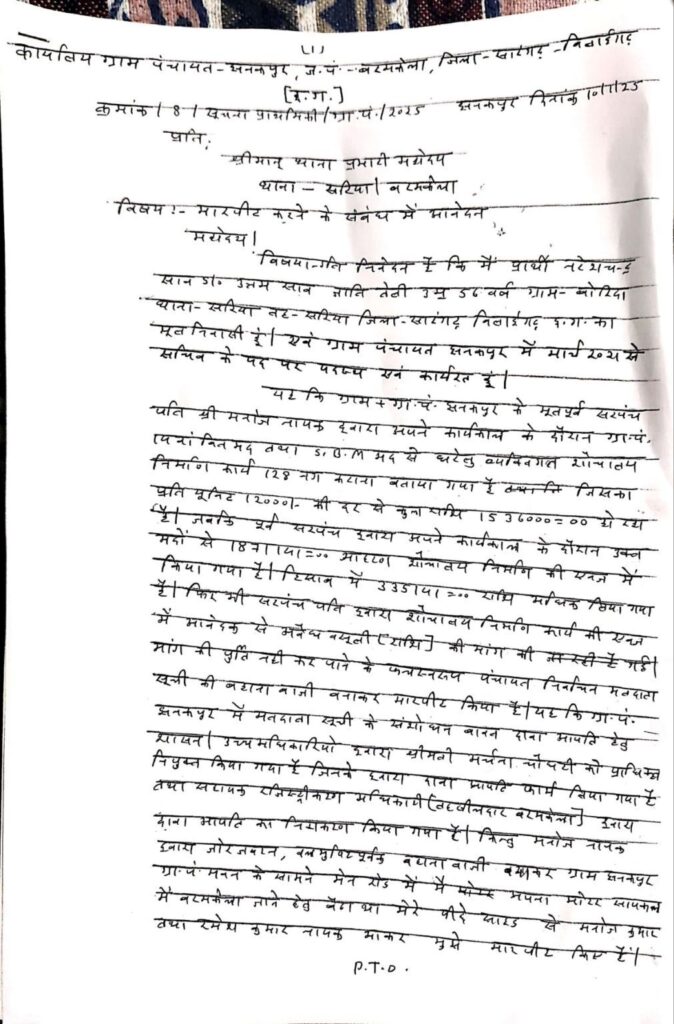 (1)
कार्यालय ग्राम पंचायत - झनकपुर, ज.पं. - बरमकेला, जिला - सारंगढ़ - बिलाईगढ़
[छ.ग.]
क्रमांक / 8 / सूचना प्राथमिकी / ग्रा.पं. / 2025 झनकपुर दिनांक
प्रति,
श्रीमान् थाना प्रभारी महोदय
थाना - सरिया / बरमकेला
विषय :- मारपीट करने के संबंध में आवेदन
महोदय।
विषयान्तर्गत निवेदन है कि मैं प्रार्थी
साव S/o उत्तम साव जाति तेली उम्र 56 वर्ष ग्राम - बोरिदा
थाना - सरिया तह - सरिया जिला - सारंगढ़ बिलाईगढ़ छ.ग. का
मूल निवासी हूं। एवं ग्राम पंचायत झनकपुर में मार्च से
सचिव के पद पर पदस्थ एवं कार्यरत हूं।
यह कि ग्राम + ग्रा.पं. झनकपुर के भूतपूर्व सरपंच
पति श्री मनोज नायक द्वारा अपने कार्यकाल के दौरान ग्रा.पं.
मद तथा S.B.M मद से घरेलु व्यक्तिगत शौचालय
निर्माण कार्य 128 नग कराना बताया गया है जिसका
प्रति यूनिट 12000/- की दर से कुल राशि 1536000=00 हो रहा
है। जबकि पूर्व सरपंच द्वारा अपने कार्यकाल के दौरान उक्त
मदों से शौचालय निर्माण की एवज में
किया गया है। हिसाब में राशि अधिक लिया गया
है। फिर भी सरपंच पति द्वारा शौचालय निर्माण कार्य की एवज
में आवेदक से अवैध वसूली (राशि) की मांग की जा रही है
मांग की पूर्ति नही कर पाने के फलस्वरूप पंचायत निर्वाचन मतदाता
सूची की बहाना बाजी बनाकर मारपीट किया है। यह कि ग्रा.पं.
झनकपुर में मतदाता सूची के संशोधन बावत दावा आपति हेतु
शासन / उच्च अधिकारियो द्वारा श्रीमती अर्चना चौधरी को प्राधिकृत
नियुक्त किया गया है जिनके द्वारा दावा आपति फार्म लिया गया है
तथा सहायक रजिस्ट्रीकरण अधिकारी (तहसीलदार बरमकेला) द्वारा
दावा आपति का निराकरण किया गया है। किन्तु मनोज नायक
द्वारा जोर जबरन, बहाना बाजी बनाकर ग्राम झनकपुर
ग्रा.पं भवन के सामने मेन रोड में मैं अपना मोटर सायकल
में बरमकेला जाने हेतु बैठा था मेरे पीछे साइड से मनोज कुमार
तथा रमेश कुमार नायक आकर मुझे मारपीट किए हैं।
P.T.O.